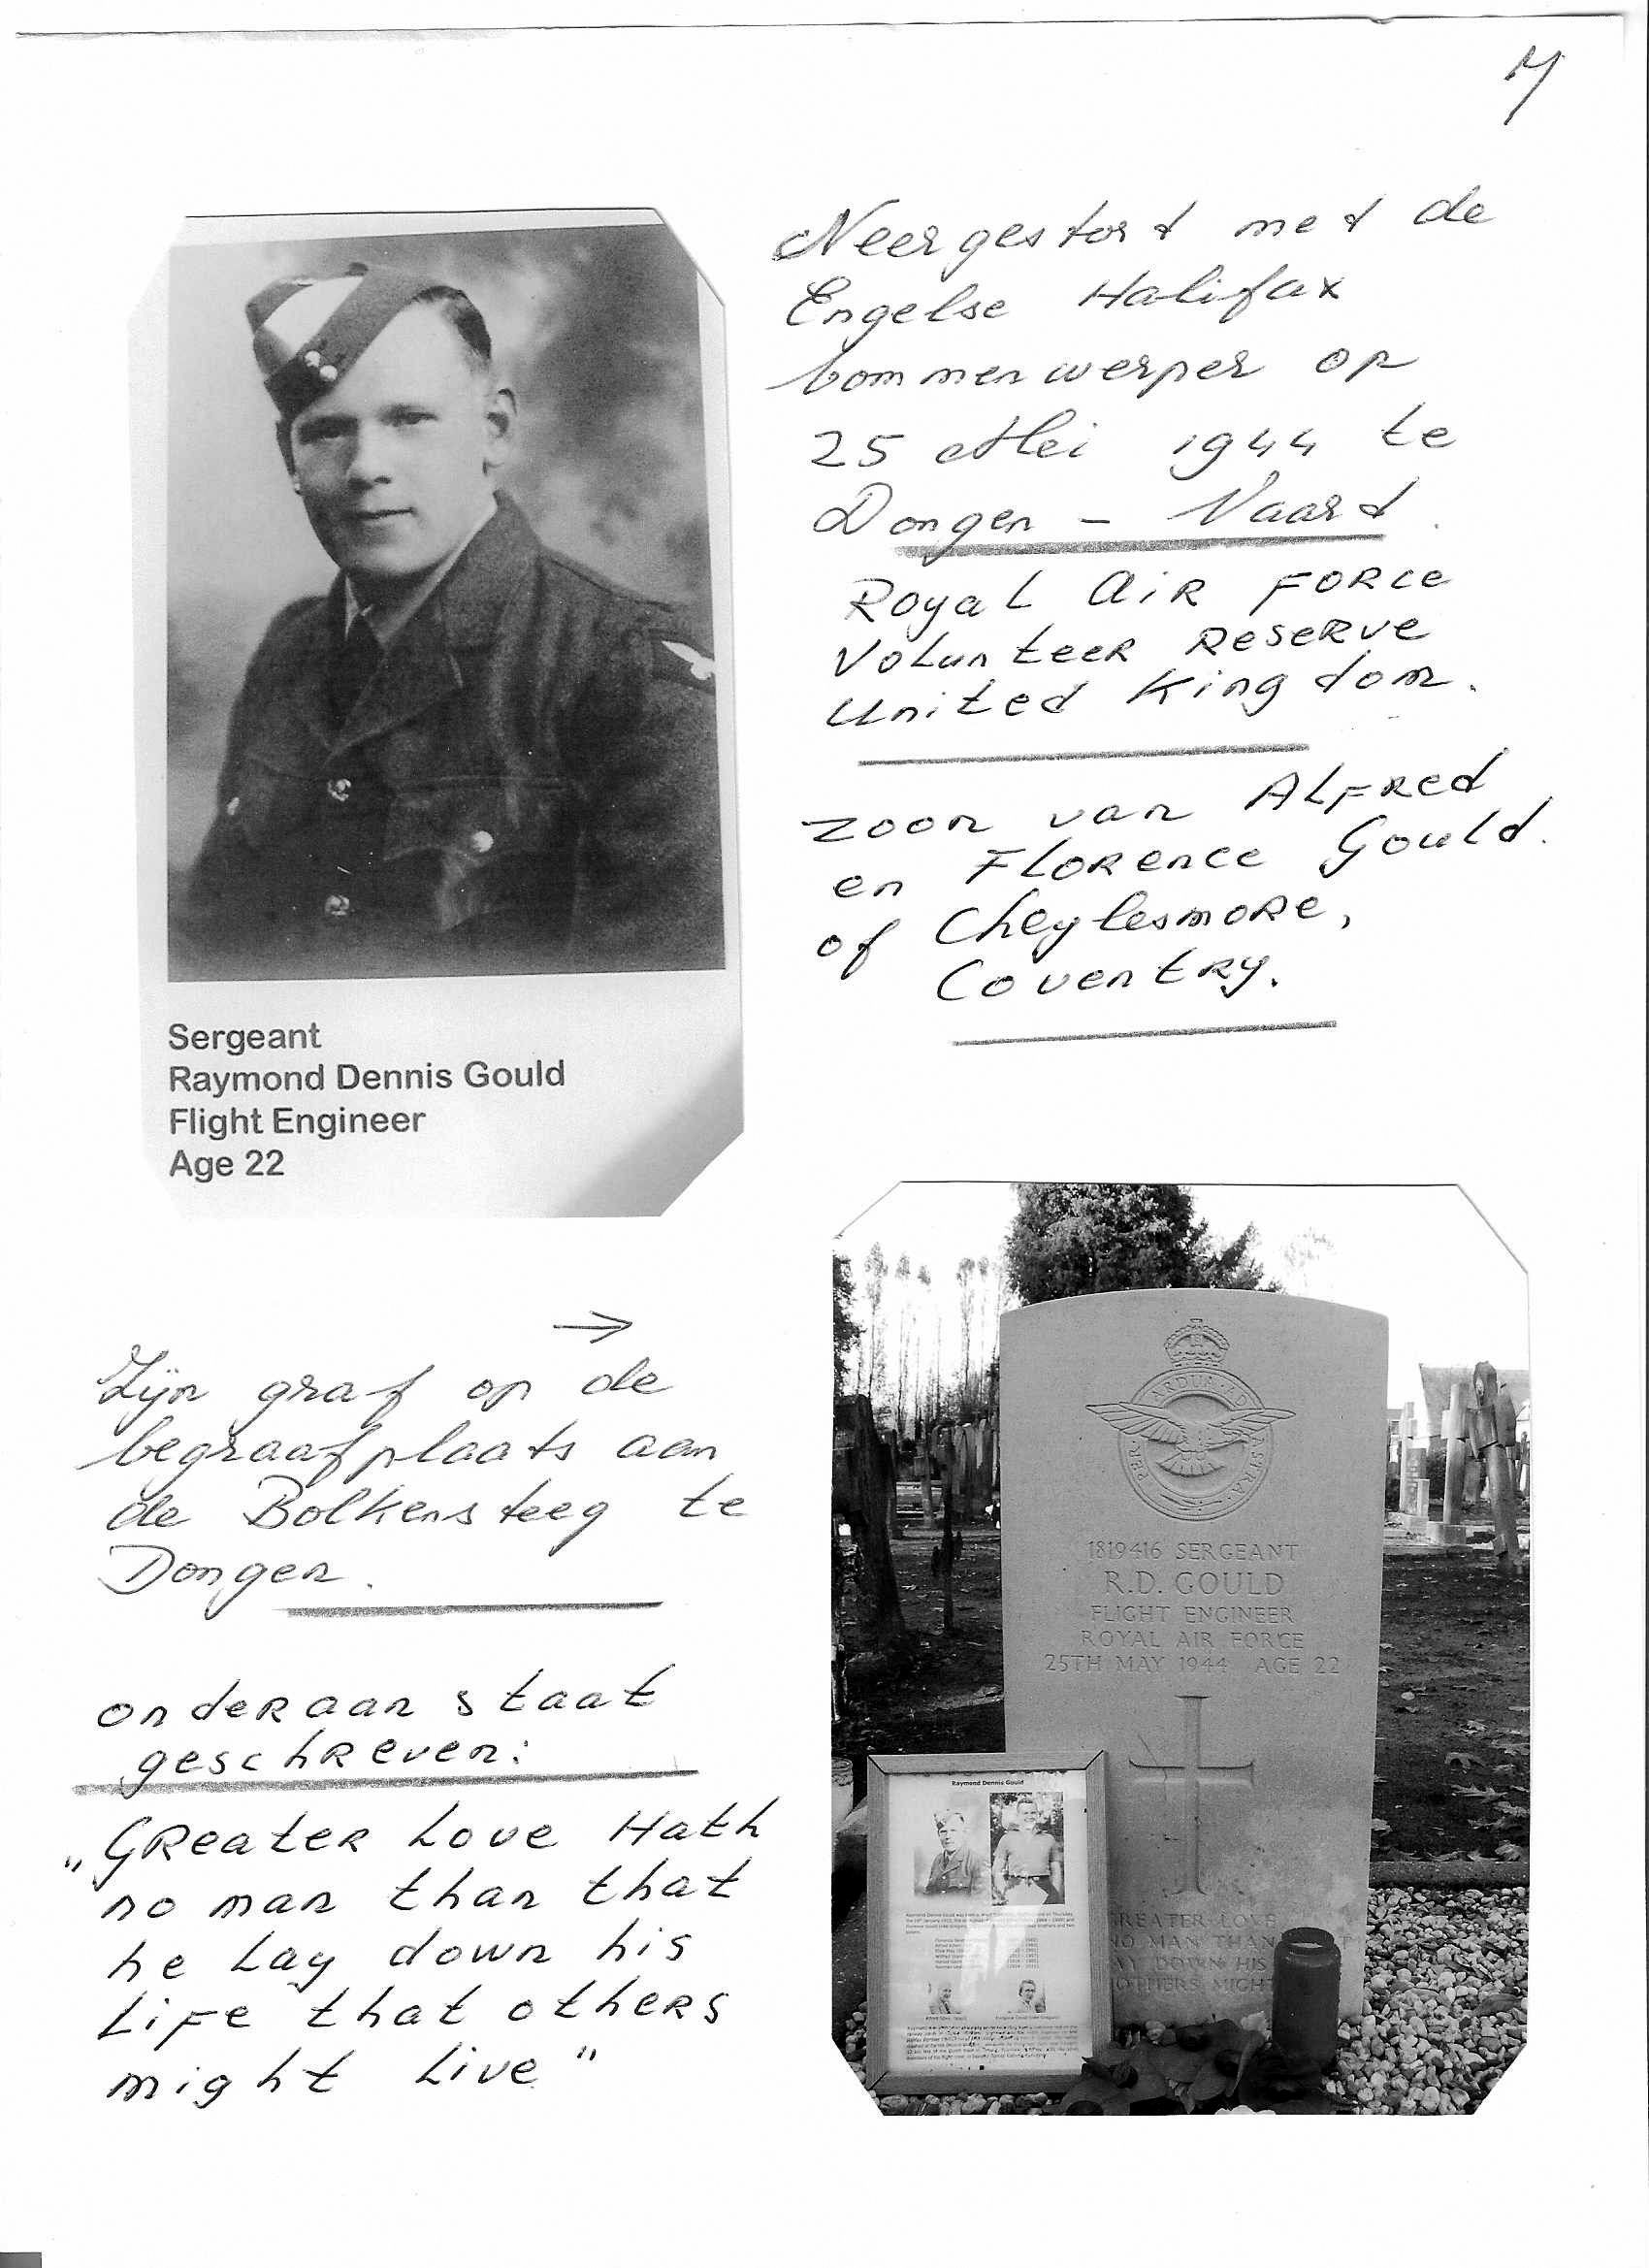 Neergestort met de
Engelse Halifax
bommenwerper op
25 Mei 1944 te
Dongen - Vaart.
Royal Air Force
Volunteer Reserve
United Kingdom.
zoon van Alfred
en Florence Gould.
of Cheylesmore,
Coventry.
Sergeant
Raymond Dennis Gould
Flight Engineer
Age 22
→
Zijn graf op de
begraafplaats aan
de Bolkensteeg te
Dongen.
onderaan staat
geschreven:
„Greater Love Hath
no man than that
he Lay down his
Life that others
might Live"
PER ARDUA AD ASTRA
1819416 SERGEANT
R.D. GOULD
FLIGHT ENGINEER
ROYAL AIR FORCE
25TH MAY 1944 AGE 22
GREATER LOVE
NO MAN THAN
DOWN HIS
OTHERS MIGHT
Raymond Dennis Gould